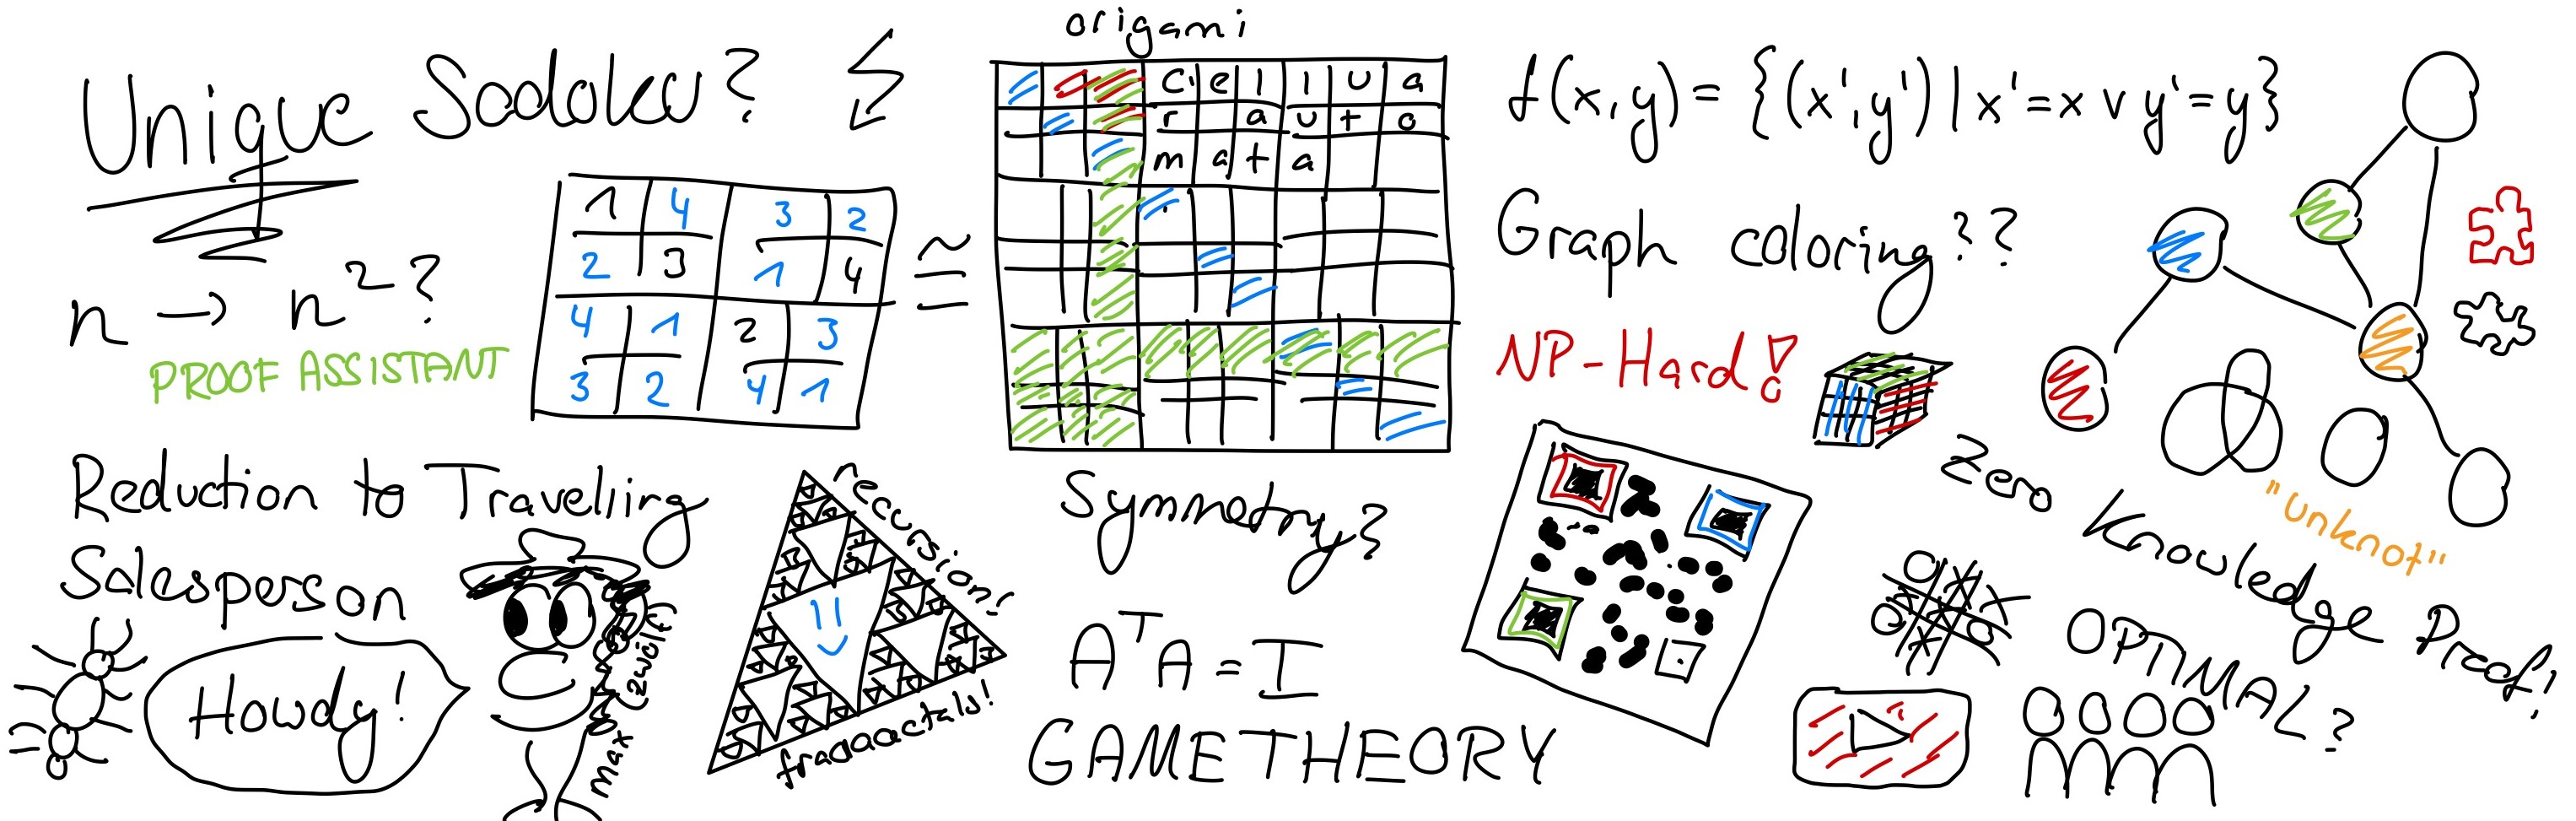 Unique Sodoku?
n → n²?
PROOF ASSISTANT
1 4 3 2
2 3 1 4
4 1 2 3
3 2 4 1
≅
origami
C e l l u a
r a u t o
m a t a
f(x,y) = {(x',y') | x'=x ∨ y'=y}
Graph coloring??
NP-Hard!
Reduction to Traveliing
Salesperson
Howdy!
max (zwölf)
recursion!
fraaaactals!
Symmetry?
AᵀA = I
GAME THEORY
Zero Knowledge Proof!
"Unknot"
OPTIMAL?